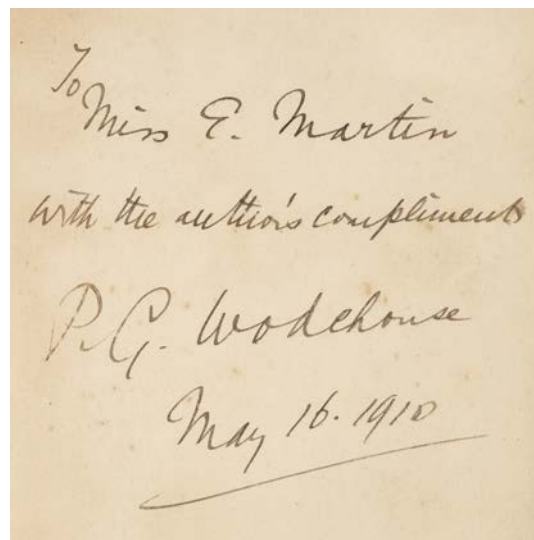 To
Miss E. Martin
with the author's compliments
P. G. Wodehouse
May 16. 1910